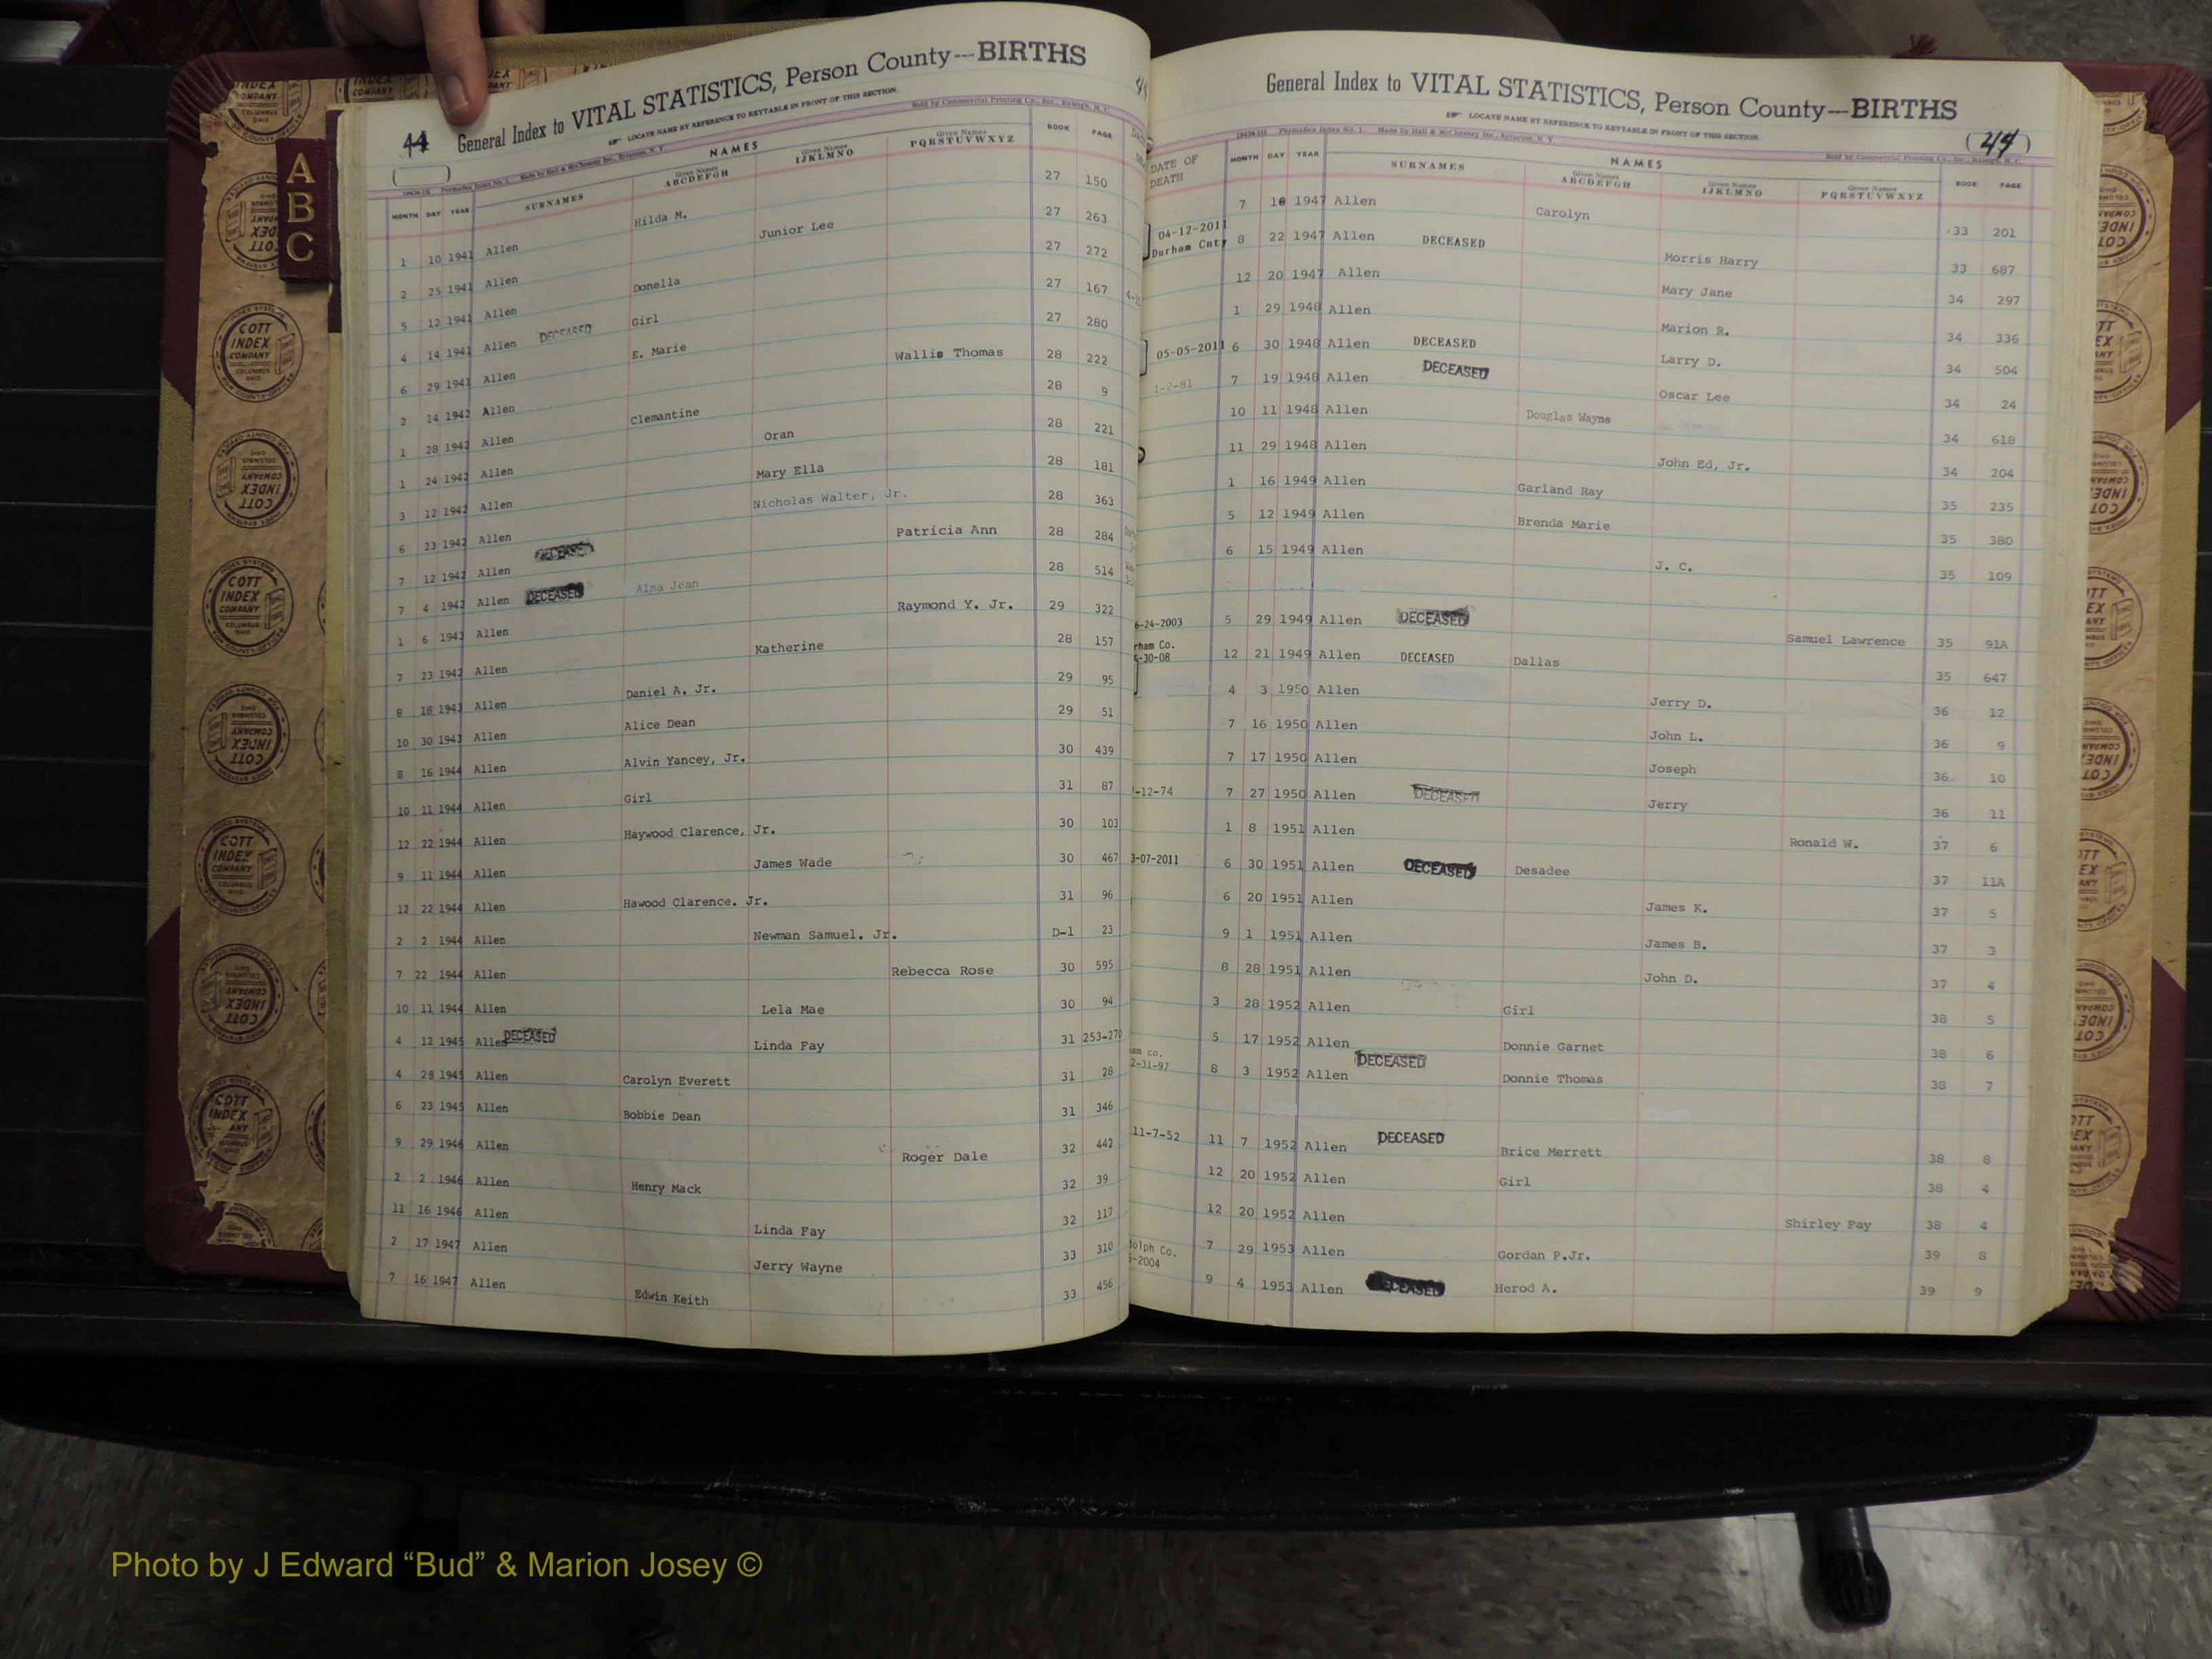 44 General Index to VITAL STATISTICS, Person County---BIRTHS
LOCATE NAME BY REFERENCE TO KEYTABLE IN FRONT OF THIS SECTION.
Sold by Commercial Printing Co., Inc., Raleigh, N. C.
NAMES
MONTH DAY YEAR SURNAMES Given Names ABCDEFGH Given Names IJKLMNO Given Names PQRSTUVWXYZ BOOK PAGE
1 10 1941 Allen Hilda M. 27 150
2 25 1941 Allen Junior Lee 27 263
5 12 1941 Allen Donella 27 272
4 14 1941 Allen DECEASED Girl 27 167
6 29 1941 Allen E. Marie 27 280
2 14 1942 Allen Wallis Thomas 28 222
1 28 1942 Allen Clemantine 28 9
1 24 1942 Allen Oran 28 221
3 12 1942 Allen Mary Ella 28 181
6 23 1942 Allen Nicholas Walter, Jr. 28 363
7 12 1942 Allen DECEASED Patricia Ann 28 284
7 4 1942 Allen DECEASED Alma Jean 28 514
1 6 1943 Allen Raymond Y. Jr. 29 322
7 23 1942 Allen Katherine 28 157
8 18 1943 Allen Daniel A. Jr. 29 95
10 30 1943 Allen Alice Dean 29 51
8 16 1944 Allen Alvin Yancey, Jr. 30 439
10 11 1944 Allen Girl 31 87
12 22 1944 Allen Haywood Clarence, Jr. 30 103
9 11 1944 Allen James Wade 30 467
12 22 1944 Allen Hawood Clarence. Jr. 31 96
2 2 1944 Allen Newman Samuel. Jr. D-1 23
7 22 1944 Allen Rebecca Rose 30 595
10 11 1944 Allen Lela Mae 30 94
4 12 1945 Allen DECEASED Linda Fay 31 253-270
4 28 1945 Allen Carolyn Everett 31 28
6 23 1945 Allen Bobbie Dean 31 346
9 29 1946 Allen Roger Dale 32 442
2 2 1946 Allen Henry Mack 32 39
11 16 1946 Allen Linda Fay 32 117
2 17 1947 Allen Jerry Wayne 33 310
7 16 1947 Allen Edwin Keith 33 456
A
B
C
General Index to VITAL STATISTICS, Person County---BIRTHS
LOCATE NAME BY REFERENCE TO KEYTABLE IN FRONT OF THIS SECTION.
(44)
NAMES
DATE OF DEATH MONTH DAY YEAR SURNAMES Given Names ABCDEFGH Given Names IJKLMNO Given Names PQRSTUVWXYZ BOOK PAGE
7 18 1947 Allen Carolyn 33 201
04-12-2011 Durham Cnty 8 22 1947 Allen DECEASED Morris Harry 33 687
12 20 1947 Allen Mary Jane 34 297
1 29 1948 Allen Marion R. 34 336
05-05-2011 6 30 1948 Allen DECEASED Larry D. 34 504
1-2-81 7 19 1948 Allen DECEASED Oscar Lee 34 24
10 11 1948 Allen Douglas Wayne 34 618
11 29 1948 Allen John Ed, Jr. 34 204
1 16 1949 Allen Garland Ray 35 235
5 12 1949 Allen Brenda Marie 35 380
6 15 1949 Allen J. C. 35 109
6-24-2003 5 29 1949 Allen DECEASED Samuel Lawrence 35 91A
rham Co. 12 21 1949 Allen DECEASED Dallas 35 647
-30-08
4 3 1950 Allen Jerry D. 36 12
7 16 1950 Allen John L. 36 9
7 17 1950 Allen Joseph 36 10
-12-74 7 27 1950 Allen DECEASED Jerry 36 11
1 8 1951 Allen Ronald W. 37 6
3-07-2011 6 30 1951 Allen DECEASED Desadee 37 11A
6 20 1951 Allen James K. 37 5
9 1 1951 Allen James B. 37 3
8 28 1951 Allen John D. 37 4
3 28 1952 Allen Girl 38 5
5 17 1952 Allen Donnie Garnet 38 6
2-31-97 8 3 1952 Allen DECEASED Donnie Thomas 38 7
11-7-52 11 7 1952 Allen DECEASED Brice Merrett 38 8
12 20 1952 Allen Girl 38 4
12 20 1952 Allen Shirley Fay 38 4
dolph Co. 7 29 1953 Allen Gordan P.Jr. 39 8
-2004 9 4 1953 Allen DECEASED Herod A. 39 9
COTT INDEX COMPANY COLUMBUS OHIO
Photo by J Edward “Bud” & Marion Josey ©